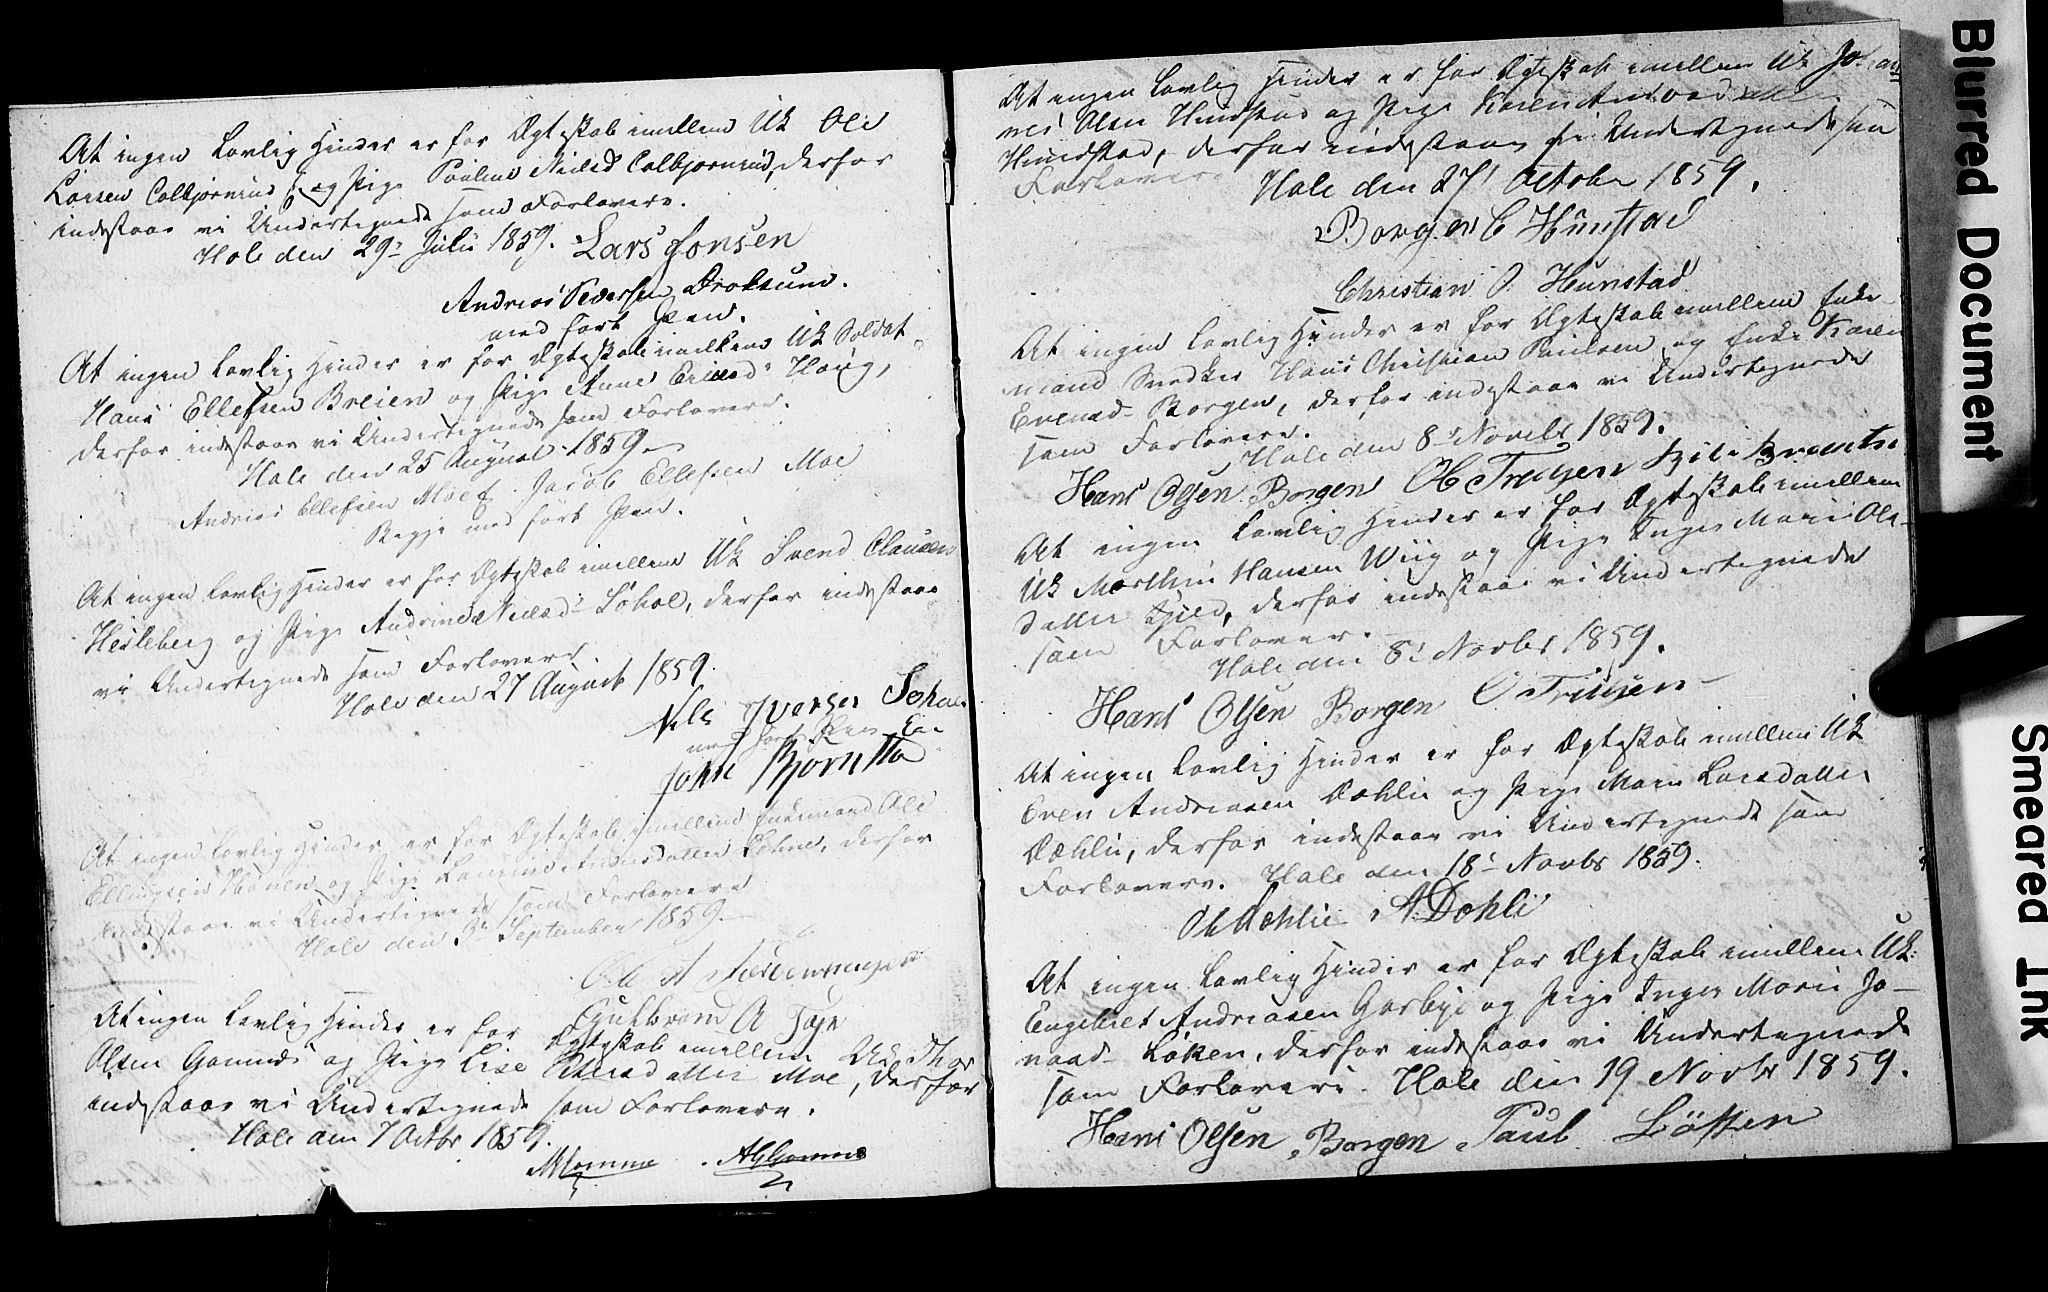 At ingen lovlig Hinder er for Ægteskab imellem Uk Ole
Larsen Colbjørnsrud og Pige Pauline Nielsd Colbjørnsrud, derfor
indestaar vi Undertegnede som Forlovere.
Hole den 29 Juli 1859. Lars Jonsen
Andreas Pedersen Droksum.
med ført Pen.
At ingen lovlig Hinder er for Ægteskab imellem Uk Soldat
Hans Ellefsen Breien og Pige Anne Haug,
derfor indestaar vi Undertegnede som Forlovere.
Hole den 25 August 1859
Andreas Ellefsen Moe Jacob Ellefsen Moe
Begge med ført Pen.
At ingen lovlig Hinder er for Ægteskab imellem Uk Svend Clausen
Hesleberg og Pige Andrine Nielsd Søhol, derfor indestaar
vi Undertegnede som Forlovere.
Hole den 27 August 1859.
Nils Iversen Sohol
med ført Pen
John Bjørnstad
At ingen lovlig Hinder er for Ægteskab imellem Enkemand Ole
Ellingsen Hønen og Pige Laurine Løhne, derfor
indestaar vi Undertegnede som Forlovere
Hole den 3 September 1859.
Ole A
Gulbrand A
At ingen lovlig Hinder er for Ægteskab imellem Uk Thor
Olsen og Pige Lise Moe, derfor
indestaar vi Undertegnede som Forlovere.
Hole den 7 Octbr 1859.
At ingen lovlig Hinder er for Ægteskab imellem Uk Jo
nes Olsen Hundstad og Pige Karen
Hundstad, derfor indestaar vi Undertegnede som
Forlovere
Hole den 27 October 1859.
Borger C Hunstad
Christian Hunstad
At ingen lovlig Hinder er for Ægteskab imellem Enke-
mand Snedker Hans Christian Paulsen og Enke Karen
Evensd Borgen, derfor indestaar vi Undertegnede
som Forlovere.
Hole den 8 Novbr 1859.
Hans Olsen Borgen
At ingen lovlig Hinder er for Ægteskab imellem
Uk Marthin Hansen Wiig og Pige Inger Marie Ols-
datter Hjeld, derfor indestaar vi Undertegnede
som Forlovere.
Hole den 8 Novbr 1859.
Hans Olsen Borgen
At ingen lovlig Hinder er for Ægteskab imellem Uk
Even Andreasen Dæhlie og Pige Maren Larsdatter
Dæhlie, derfor indestaar vi Undertegnede som
Forlovere. Hole den 18 Novbr 1859.
Ol Dæhlie A Dæhli
At ingen lovlig Hinder er for Ægteskab imellem Uk:
Engebret Andreasen Gorbye og Pige Inger Marie Jo-
naad Løken, derfor indestaar vi Undertegnede
som Forlovere. Hole den 19 Novbr 1859.
Hans Olsen Borgen Paul
Blurred Document
Smeared Ink